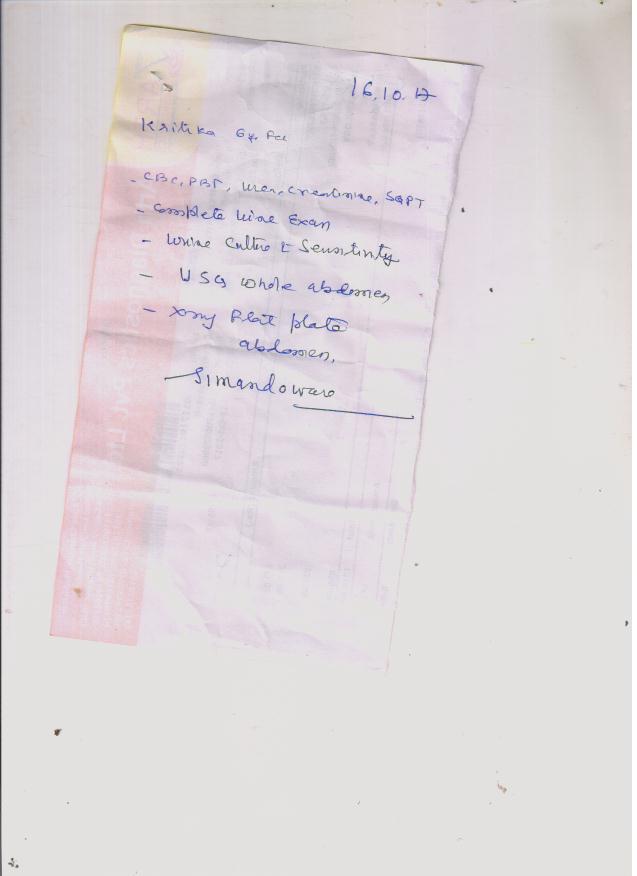 16.10.17
Kritika 6y.
- CBC, PBF, Urea, Creatinine, SGPT
- Complete Urine Exam
- Urine Cultre & Sensitivity
- USG whole abdomen
- Xray Flat plate
abdomen.